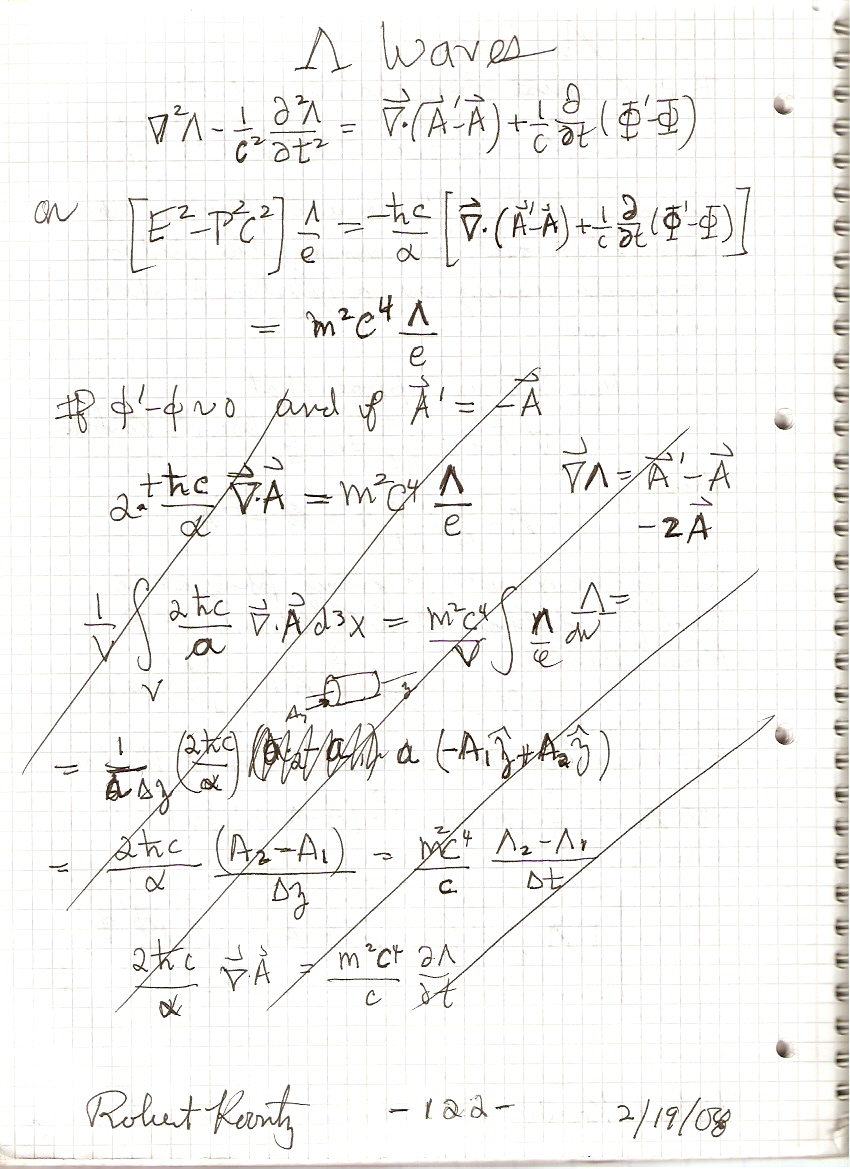 Λ Waves
∇²Λ - 1/c² ∂²Λ/∂t² = ∇⃗·(A⃗'-A⃗) + 1/c ∂/∂t (Φ'-Φ)
or [E²-P²C²] Λ/e = -ħc/α [∇⃗·(A⃗'-A⃗) + 1/c ∂/∂t (Φ'-Φ)]
= m²c⁴ Λ/e
If ϕ'-ϕ ~ 0 and if A⃗' = -A⃗
2·+ħc/α ∇⃗·A⃗ = m²c⁴ Λ/e ∇⃗Λ = A⃗'-A⃗
-2A⃗
1/V ∫_V 2ħc/α ∇⃗·A⃗ d³x = m²c⁴/V ∫ Λ/e =
A₁ z
= 1/(a Δz) (2ħc/α) a (-A₁ẑ + A₂ẑ)
= 2ħc/α (A₂-A₁)/Δz = m²c⁴/c (Λ₂-Λ₁)/Δt
2ħc/α ∇⃗·A⃗ = m²c⁴/c ∂Λ/∂t
Robert Koontz -122- 2/19/08